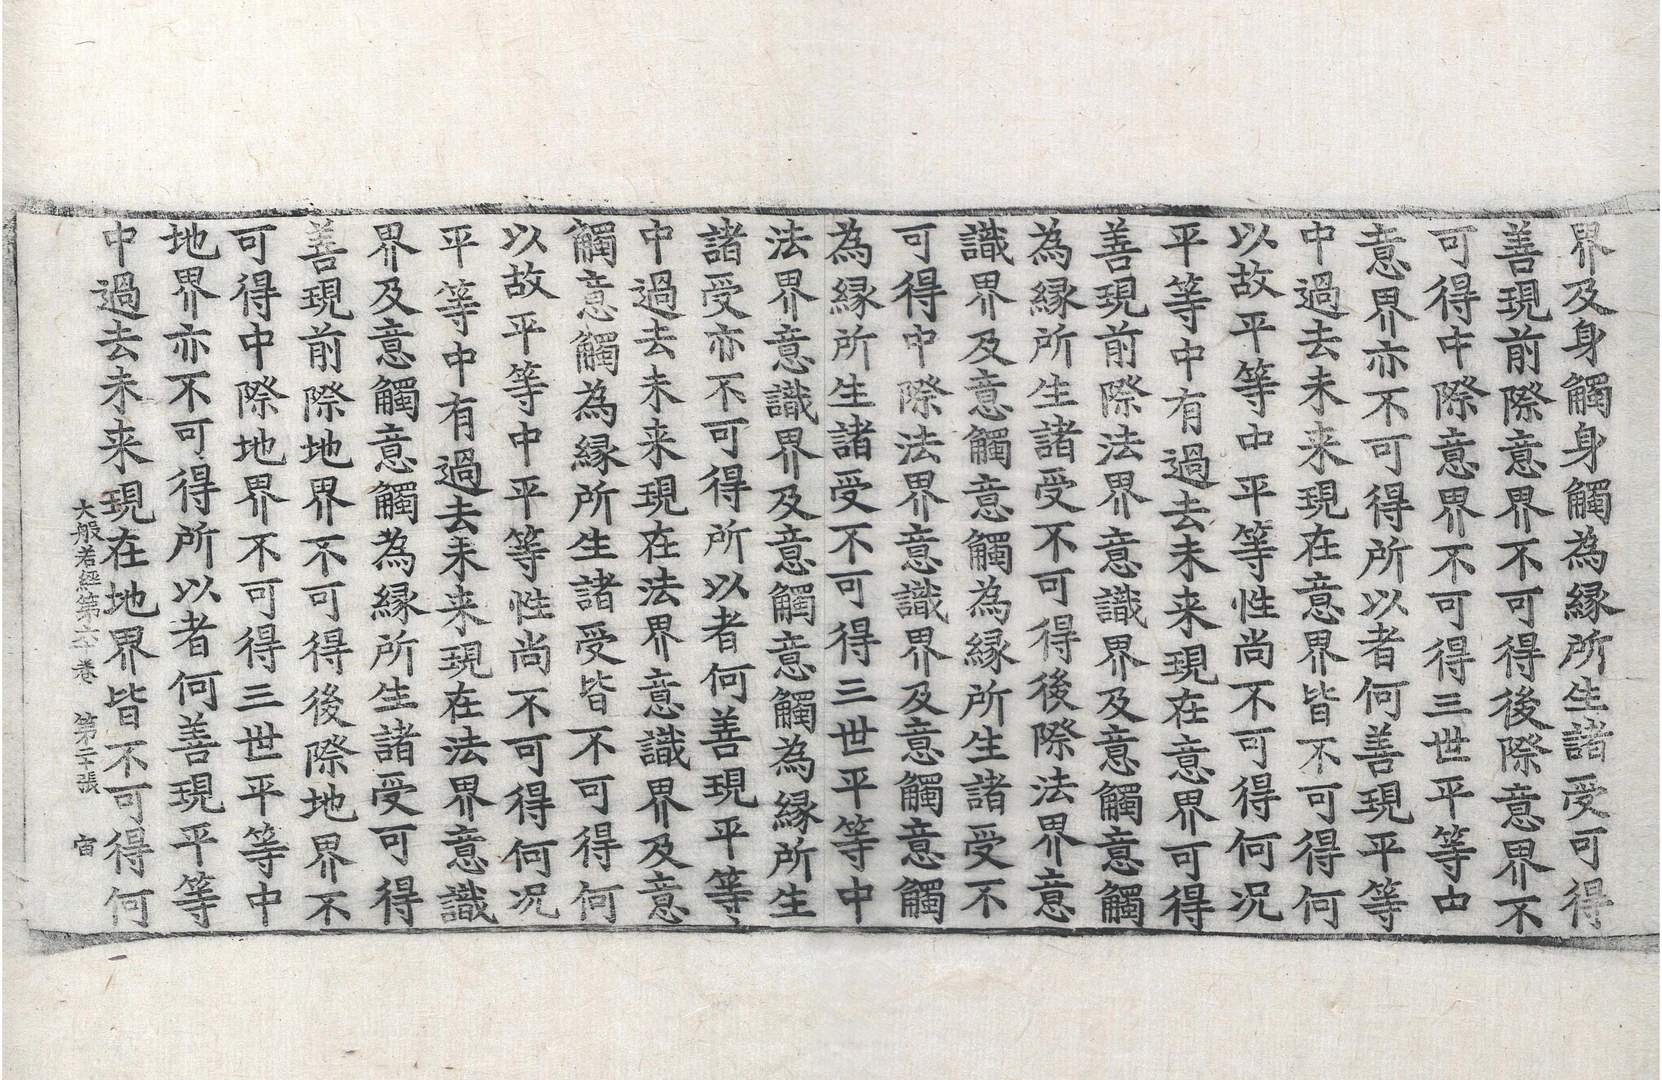 界及身觸身觸為縁所生諸受可得
善現前際意界不可得後際意界不
可得中際意界不可得三世平等中
意界亦不可得所以者何善現平等
中過去未来現在意界皆不可得何
以故平等中平等性尚不可得何况
平等中有過去未来現在意界可得
善現前際法界意識界及意觸意觸
為縁所生諸受不可得後際法界意
識界及意觸意觸為縁所生諸受不
可得中際法界意識界及意觸意觸
為縁所生諸受不可得三世平等中
法界意識界及意觸意觸為縁所生
諸受亦不可得所以者何善現平等
中過去未来現在法界意識界及意
觸意觸為縁所生諸受皆不可得何
以故平等中平等性尚不可得何况
平等中有過去未来現在法界意識
界及意觸意觸為縁所生諸受可得
善現前際地界不可得後際地界不
可得中際地界不可得三世平等中
地界亦不可得所以者何善現平等
中過去未来現在地界皆不可得何
大般若經第六十卷 第二十張 宙